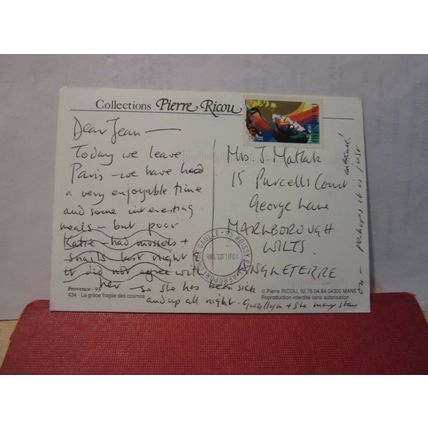 Collections Pierre Ricou
Dear Jean —
Today we leave
Paris — we have had
a very enjoyable time
and some interesting
meals — but poor
Katie had mussels +
snails last night
it did not agree with
her — so she has been sick
and up all night.
+ she may stay
Mrs. J. Matlak
15 Purcells Court
George Lane
MARLBOROUGH
WILTS.
ANGLETERRE
perhaps
Provence - 93
434 - La grâce fragile des cosmos
© Pierre RICOU, 92.75.04.84 04300 MANE
Reproduction interdite sans autorisation